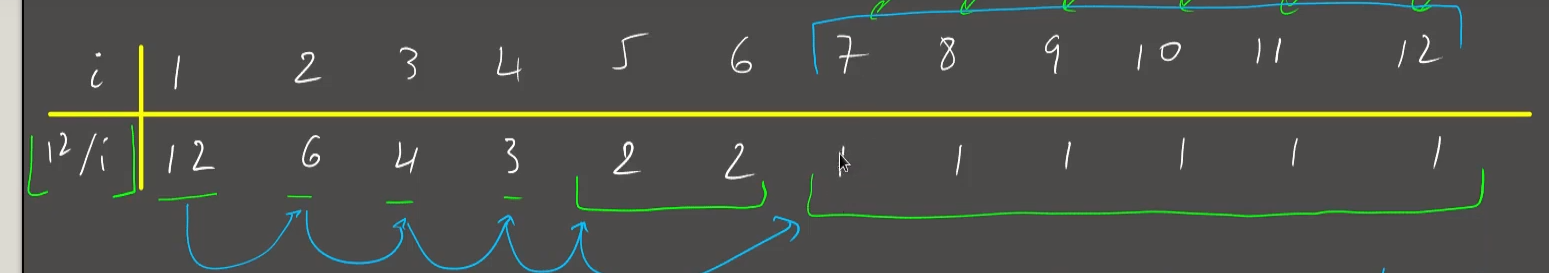 i 1 2 3 4 5 6 7 8 9 10 11 12
⌊12/i⌋ 12 6 4 3 2 2 1 1 1 1 1 1